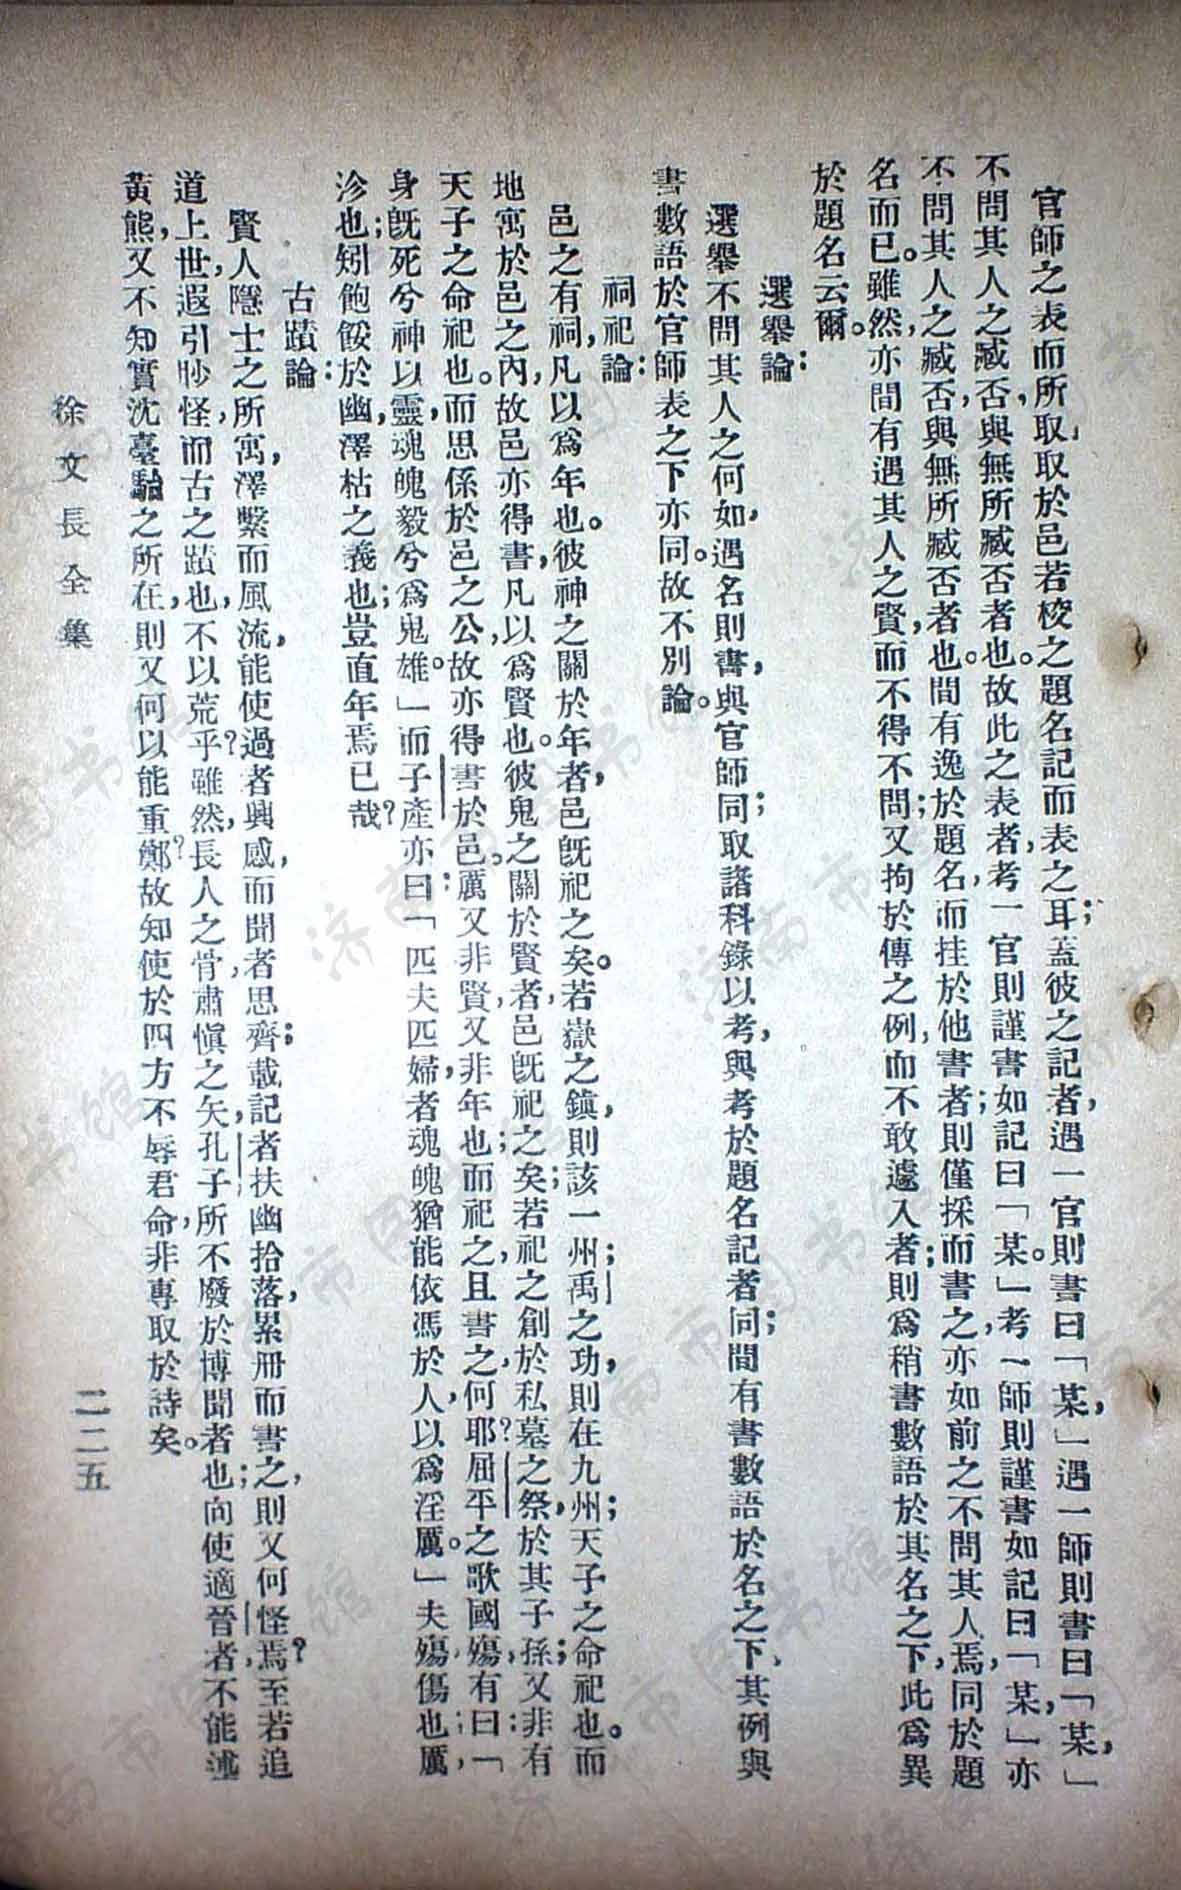 官師之表而所取取於邑若校之題名記而表之耳；蓋彼之記者，遇一官則書曰「某，」遇一師則書曰「某，」
不問其人之臧否，與無所臧否者也。故此之表者，考一官則謹書如記曰「某。」考一師則謹書如記曰「某，」亦
不問其人之臧否，與無所臧否者也。間有逸於題名，而挂於他書者；則僅採而書之，亦如前之不問其人焉，同於題
名而已。雖然，亦間有遇其人之賢，而不得不問；又拘於傳之例，而不敢遽入者；則爲稍書數語於其名之下，此爲異
於題名云爾。
選舉論：
選舉不問其人之何如，遇名則書，與官師同；取諸科錄以考，與考於題名記者同；間有書數語於名之下，其例與
書數語於官師表之下亦同。故不別論。
祠祀論：
邑之有祠，凡以爲年也。彼神之關於年者，邑旣祀之矣。若嶽之鎭，則該一州；禹之功，則在九州；天子之命祀也。而
地寓於邑之內，故邑亦得書，凡以爲賢也。彼鬼之關於賢者，邑旣祀之矣；若祀之創於私墓之祭，於其子孫；又非有
天子之命祀也。而思係於邑之公，故亦得書於邑。厲：又非賢，又非年也；而祀之，且書之，何耶？屈平之歌國殤，有曰：「
身旣死兮神以靈，魂魄毅兮爲鬼雄。」而子產亦曰「匹夫匹婦者，魂魄猶能依馮於人，以爲淫厲。」夫殤傷也；厲，
沴也；矧飽餒於幽，澤枯之義也；豈直年焉已哉？
古蹟論：
賢人隱士之所寓，澤繫而風流，能使過者興感，而聞者思齊；載記者扶幽拾落，累册而書之，則又何怪焉？至若追
道上世，遐引眇怪而古之蹟也，不以荒乎？雖然，長人之骨，肅愼之矢，孔子所不廢於博聞者也；向使適晉者，不能述
黃熊，又不知實沈臺駘之所在，則又何以能重鄭？故知使於四方，不辱君命，非專取於詩矣。
徐文長全集
二二五